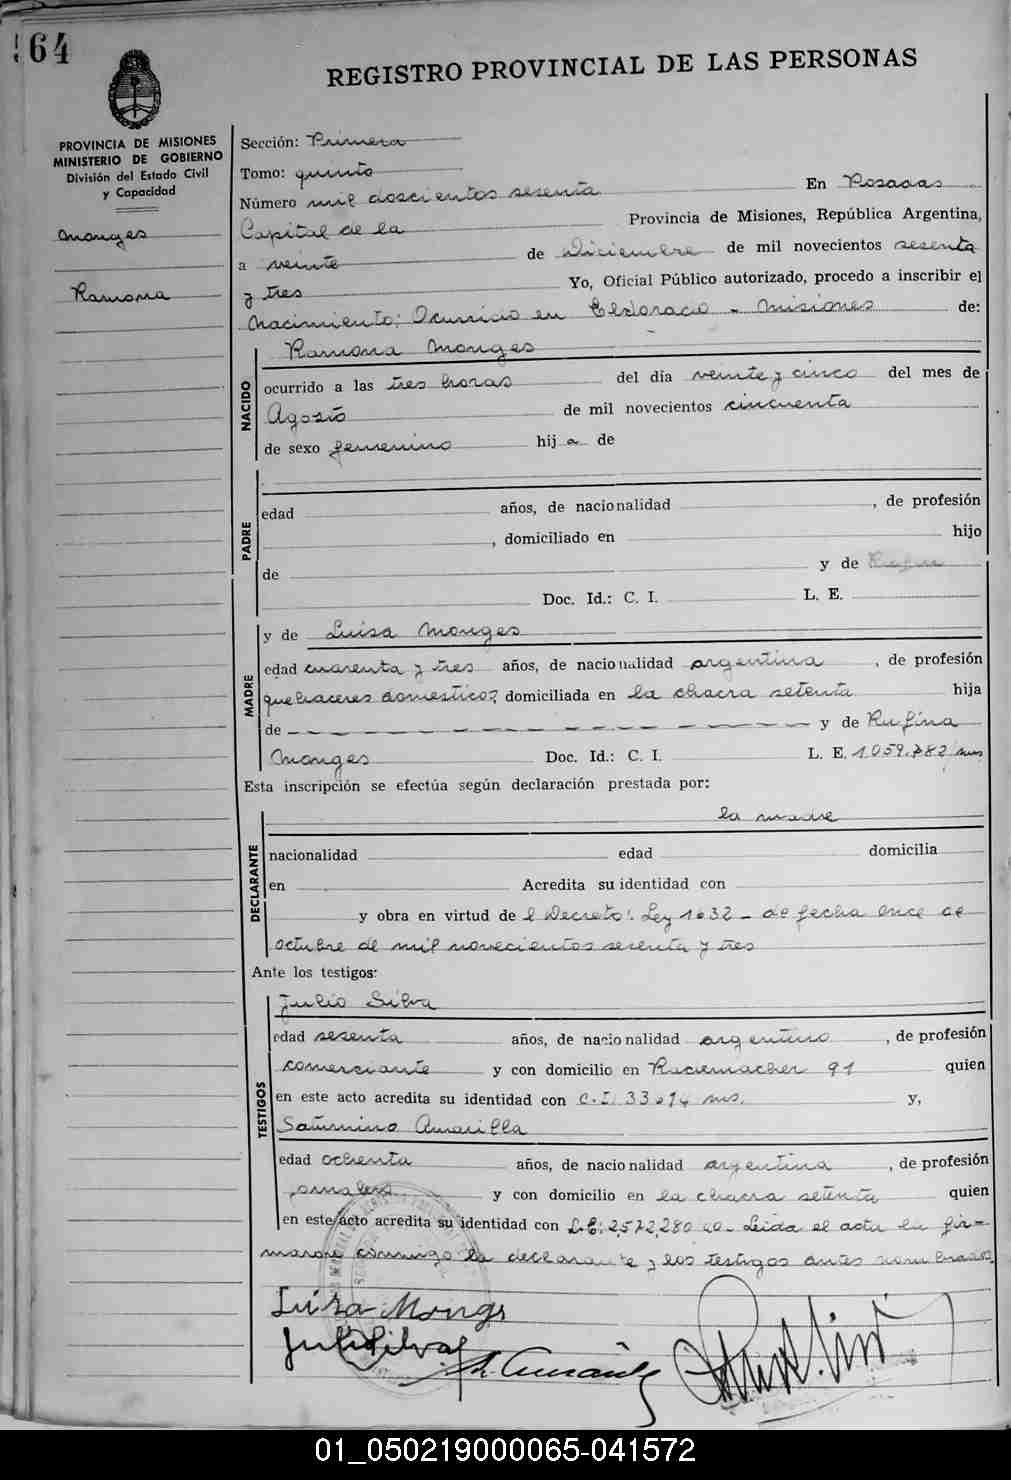 64
REGISTRO PROVINCIAL DE LAS PERSONAS
PROVINCIA DE MISIONES
MINISTERIO DE GOBIERNO
División del Estado Civil
y Capacidad
Monges
Ramona
Sección: Primera
Tomo: quinto
Número mil doscientos sesenta En Posadas
Capital de la Provincia de Misiones, República Argentina,
a veinte de Diciembre de mil novecientos sesenta
y tres Yo, Oficial Público autorizado, procedo a inscribir el
Nacimiento: Ocurrido en Eldorado - Misiones de:
Ramona Monges
NACIDO
ocurrido a las tres horas del día veinte y cinco del mes de
Agosto de mil novecientos cincuenta
de sexo femenino hij a de
PADRE
edad años, de nacionalidad , de profesión
, domiciliado en hijo
de y de
Doc. Id.: C. I. L. E.
MADRE
y de Luisa Monges
edad cuarenta y tres años, de nacionalidad argentina , de profesión
quehaceres domesticos, domiciliada en la chacra setenta hija
de — — — — — — — — y de Rufina
Monges Doc. Id.: C. I. L. E. 1.059.782/mns
Esta inscripción se efectúa según declaración prestada por:
la madre
DECLARANTE
nacionalidad edad domicilia
en Acredita su identidad con
y obra en virtud de l Decreto: Ley 1032 - de fecha once de
octubre de mil novecientos sesenta y tres
Ante los testigos:
TESTIGOS
Julio Silva
edad sesenta años, de nacionalidad argentino , de profesión
comerciante y con domicilio en Rademacher 91 quien
en este acto acredita su identidad con C.I. mns. y,
Saturnino Amarilla
edad ochenta años, de nacionalidad argentina , de profesión
jornalero y con domicilio en la chacra setenta quien
en este acto acredita su identidad con L.E: 2,572,280 Leida el acta la fir=
maron conmigo la declarante y los testigos antes nombrados.
Luisa Monges
Julio Silva
01_050219000065-041572